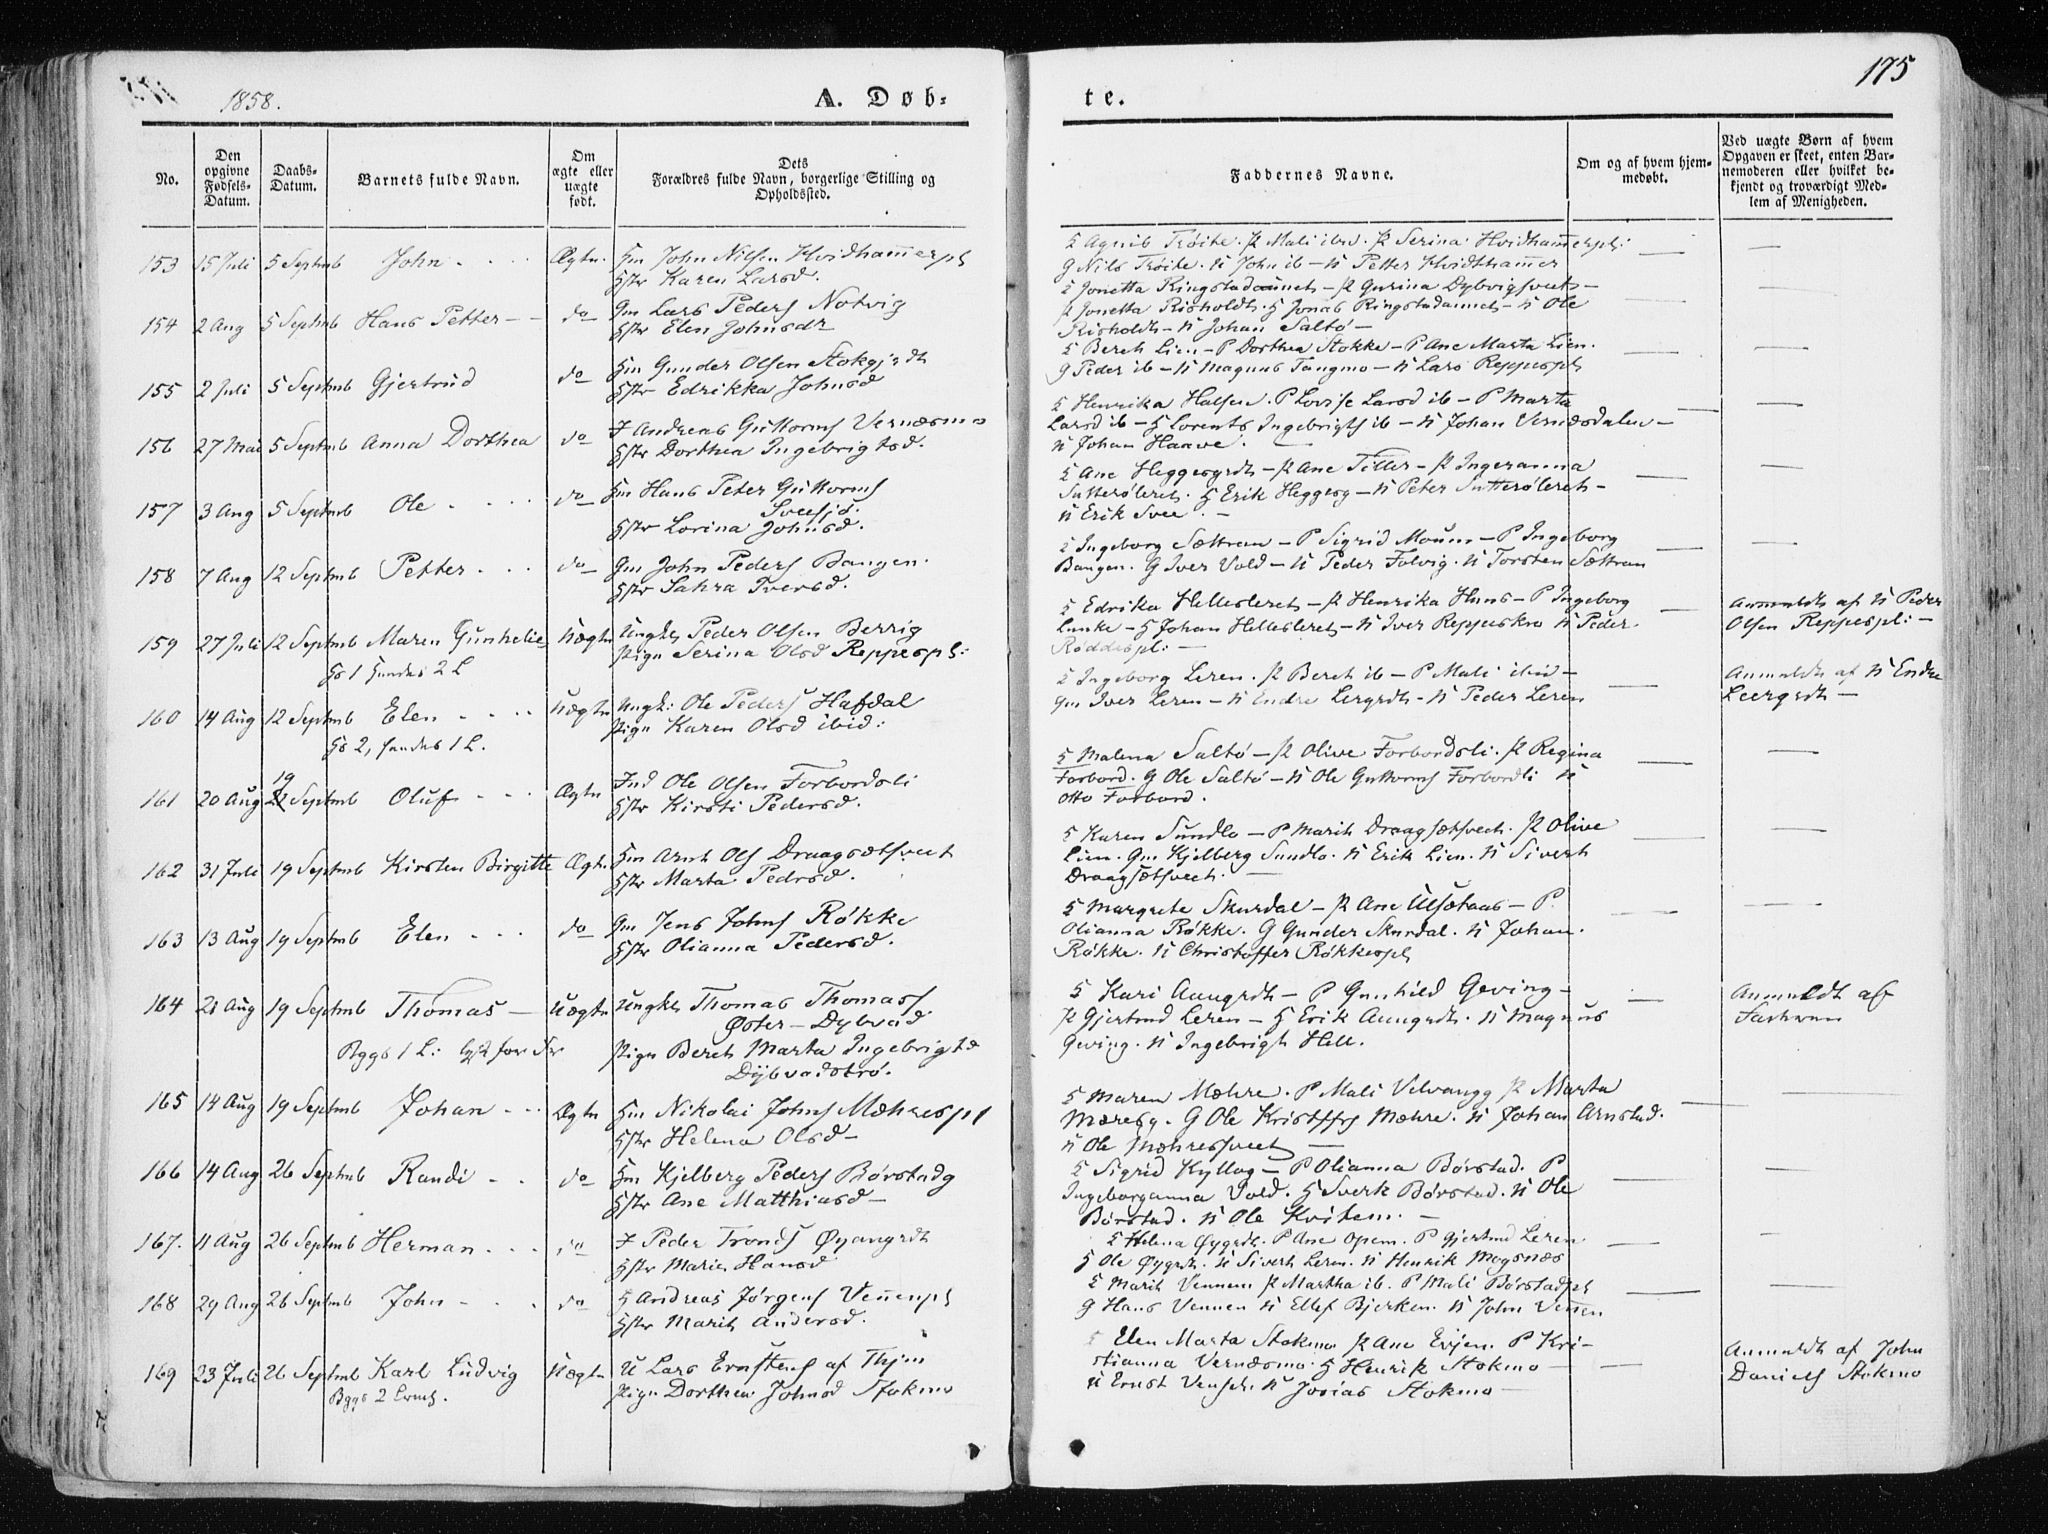 1858.
A. Døb-
te.
175
No.
Den opgivne Fødsels-Datum.
Daabs-Datum.
Barnets fulde Navn.
Om ægte eller uægte født.
Dets Forældres fulde Navn, borgerlige Stilling og Opholdssted.
Faddernes Navne.
Om og af hvem hjemmedøbt.
Ved uægte Børn af hvem Opgaven er skeet, enten Barnemoderen eller hvilket bekjendt og troværdigt Medlem af Menigheden.
153 15 Juli 5 Septmb John Ægtn. Gm John Nilsen Hvidhammerpl
Hstr Karen Larsd.
Agnis Trøite. P Mali ibd. P Serina Hvidhammerspl:
G Nils Trøite. U John ib - U Petter Hvidthammer
154 2 Aug 5 Septmb Hans Petter do Gm Lars Peders Notvig
Hstr Elen Johnsdr
Jonetta Ringstadaunet - P Gurina Dybvigsvet -
P Jonetta Risholdt. H Jonas Ringstadaunet - U Ole
Risholdt - U Johan Saltø -
155 2 Juli 5 Septmb Gjertrud do Hm Gunder Olsen Stokgjrdt
Hstr Edrikka Johnsd
Bereth Lien - P Dorthea Stokke - P Ane Marta Lien.
G Peder ib - U Magnus Tangmo - U Lars Reppespl
156 27 Mai 5 Septmb Anna Dorthea do I Andreas Guttorms Vernæsmo
Hstr Dorthea Ingebrigtsd.
Henrika Halsen. P Lovise Larsd ib - P Marta
Larsd ib - H Lorents Ingebrigts ib - U Johan Vernæsdalen -
U Johan Haave.
157 3 Aug 5 Septmb Ole do Hm Hans Peter Guttorms
Sveesjø.
Hstr Lorina Johnsd.
Ane Heggesgrdt - P Ane Tiller - P Ingeranna
Sutterøleret. H Erik Heggesg - U Peter Sutterøleret -
U Erik Svee.
158 7 Aug 12 Septmb Petter do Gm John Peders Bangen.
Hstr Sahra Iversd.
Ingeborg Sættran - P Sigrid Mouun - P Ingeborg
Bangen. G Iver Vold - U Peder Folvig. U Torsten Sættran
159 27 Juli 12 Septmb Maren Gunhelie Uægtn Ungk Peder Olsen Berrig
Pign Serina Olsd Reppespl:
Edrika Hellesleret - P Henrika Huus - P Ingeborg
Lunke - H Johan Hellesleret - U Iver Reppeskro U Peder
Røddespl: -
Anmeldt af U Peder
Olsen Reppespl: -
160 14 Aug 12 Septmb Elen Uægtn Ungk: Ole Peders Hafdal
Pign Karen Olsd ibid:
Gs 2, 1 L.
Ingeborg Leren. P Bereth ib - P Mali ibid -
Gm Iver Leren - U Endre Lergrdt - U Peder Leren
Anmeldt af U Endre
Leergrdt -
161 20 Aug 19 Septmb Oluf Ægtn Ind Ole Olsen Forbordsli
Hstr Kirsti Pedersd.
Malena Saltø - P Olive Forbordsli. P Regina
Forbord. G Ole Saltø - U Ole Guttorms Forbordli U
Otto Forbord.
162 31 Juli 19 Septmb Kirsten Birgitte Ægtn. Hm Arnt Ols Draagsætsveet
Hstr Marta Pedrsd.
Karen Sundlo - P Marit Draagsætsvect. P Olive
Lien. Gm Kjelberg Sundlo. U Erik Lien. U Sivert
Draagsætsvect.
163 13 Aug 19 Septmb Elen do Gm Jens Johns Røkke
Hstr Olianna Pedersd.
Margrete Skurdal - P Ane Ulsetaas - P
Olianna Røkke. G Gunder Skurdal. U Johan
Røkke. U Christoffer Røkkespl
164 21 Aug 19 Septmb Thomas Uægtn Ungk Thomas Thomass
Øster-Dybvad
Pign Bereth Marta Ingebrigtsd
Dybvadstrø.
Kari Aungrdt - P Gunhild Geving -
P Gjertrud Leren - H Erik Aungrdt. U Magnus
Geving. U Ingebrigt Hell.
Anmeldt af
Faderen
165 14 Aug 19 Septmb Johan Ægtn Hm Nikolai Johns Mæhrespl
Hstr Helena Olsd -
Maren Mæhre. P Mali Velvangg P Marta
Mæresg. G Ole Kristoffrs Mæhre. U Johan Arnstad.
U Ole Mæhresveet
166 14 Aug 26 Septmb Randi do Hm Kjelberg Peders Børstadg
Hstr Ane Matthiasd -
Sigrid Kyllog - P Olianna Børstad. P
Ingeborganna Vold. H Sverk Børstad. U Ole
Børstad. U Ole Kvitem. -
167. 11 Aug 26 Septmb Herman do I Peder Tronds Øyangrdt
Hstr Marie Hansd
Helena Øygrdt. P Ane Opem. P Gjertrud Leren
H Ole Øygrdt. U Sivert Leren. U Henrik Mogsnæs
168 29 Aug 26 Septmb John do H Andreas Jørgens Vennenpl
Hstr Marit Andersd.
Marit Vennem P Martha ib. P Mali Børstadpl
G Hans Vennen U Ellef Bjerken. U John Vennen
169 23 Juli 26 Septmb Karl Ludvig Uægtn U Lars Ernstens af Thjm
Pign Dorthea Johnsd Stokmo
Elen Marta Stokmo P Ane Evjen. P Kri-
stianna Vernæsmo. H Henrik Stokmo -
U Ernst U Josias Stokmo -
Anmeldt af John
Daniels Stokmo